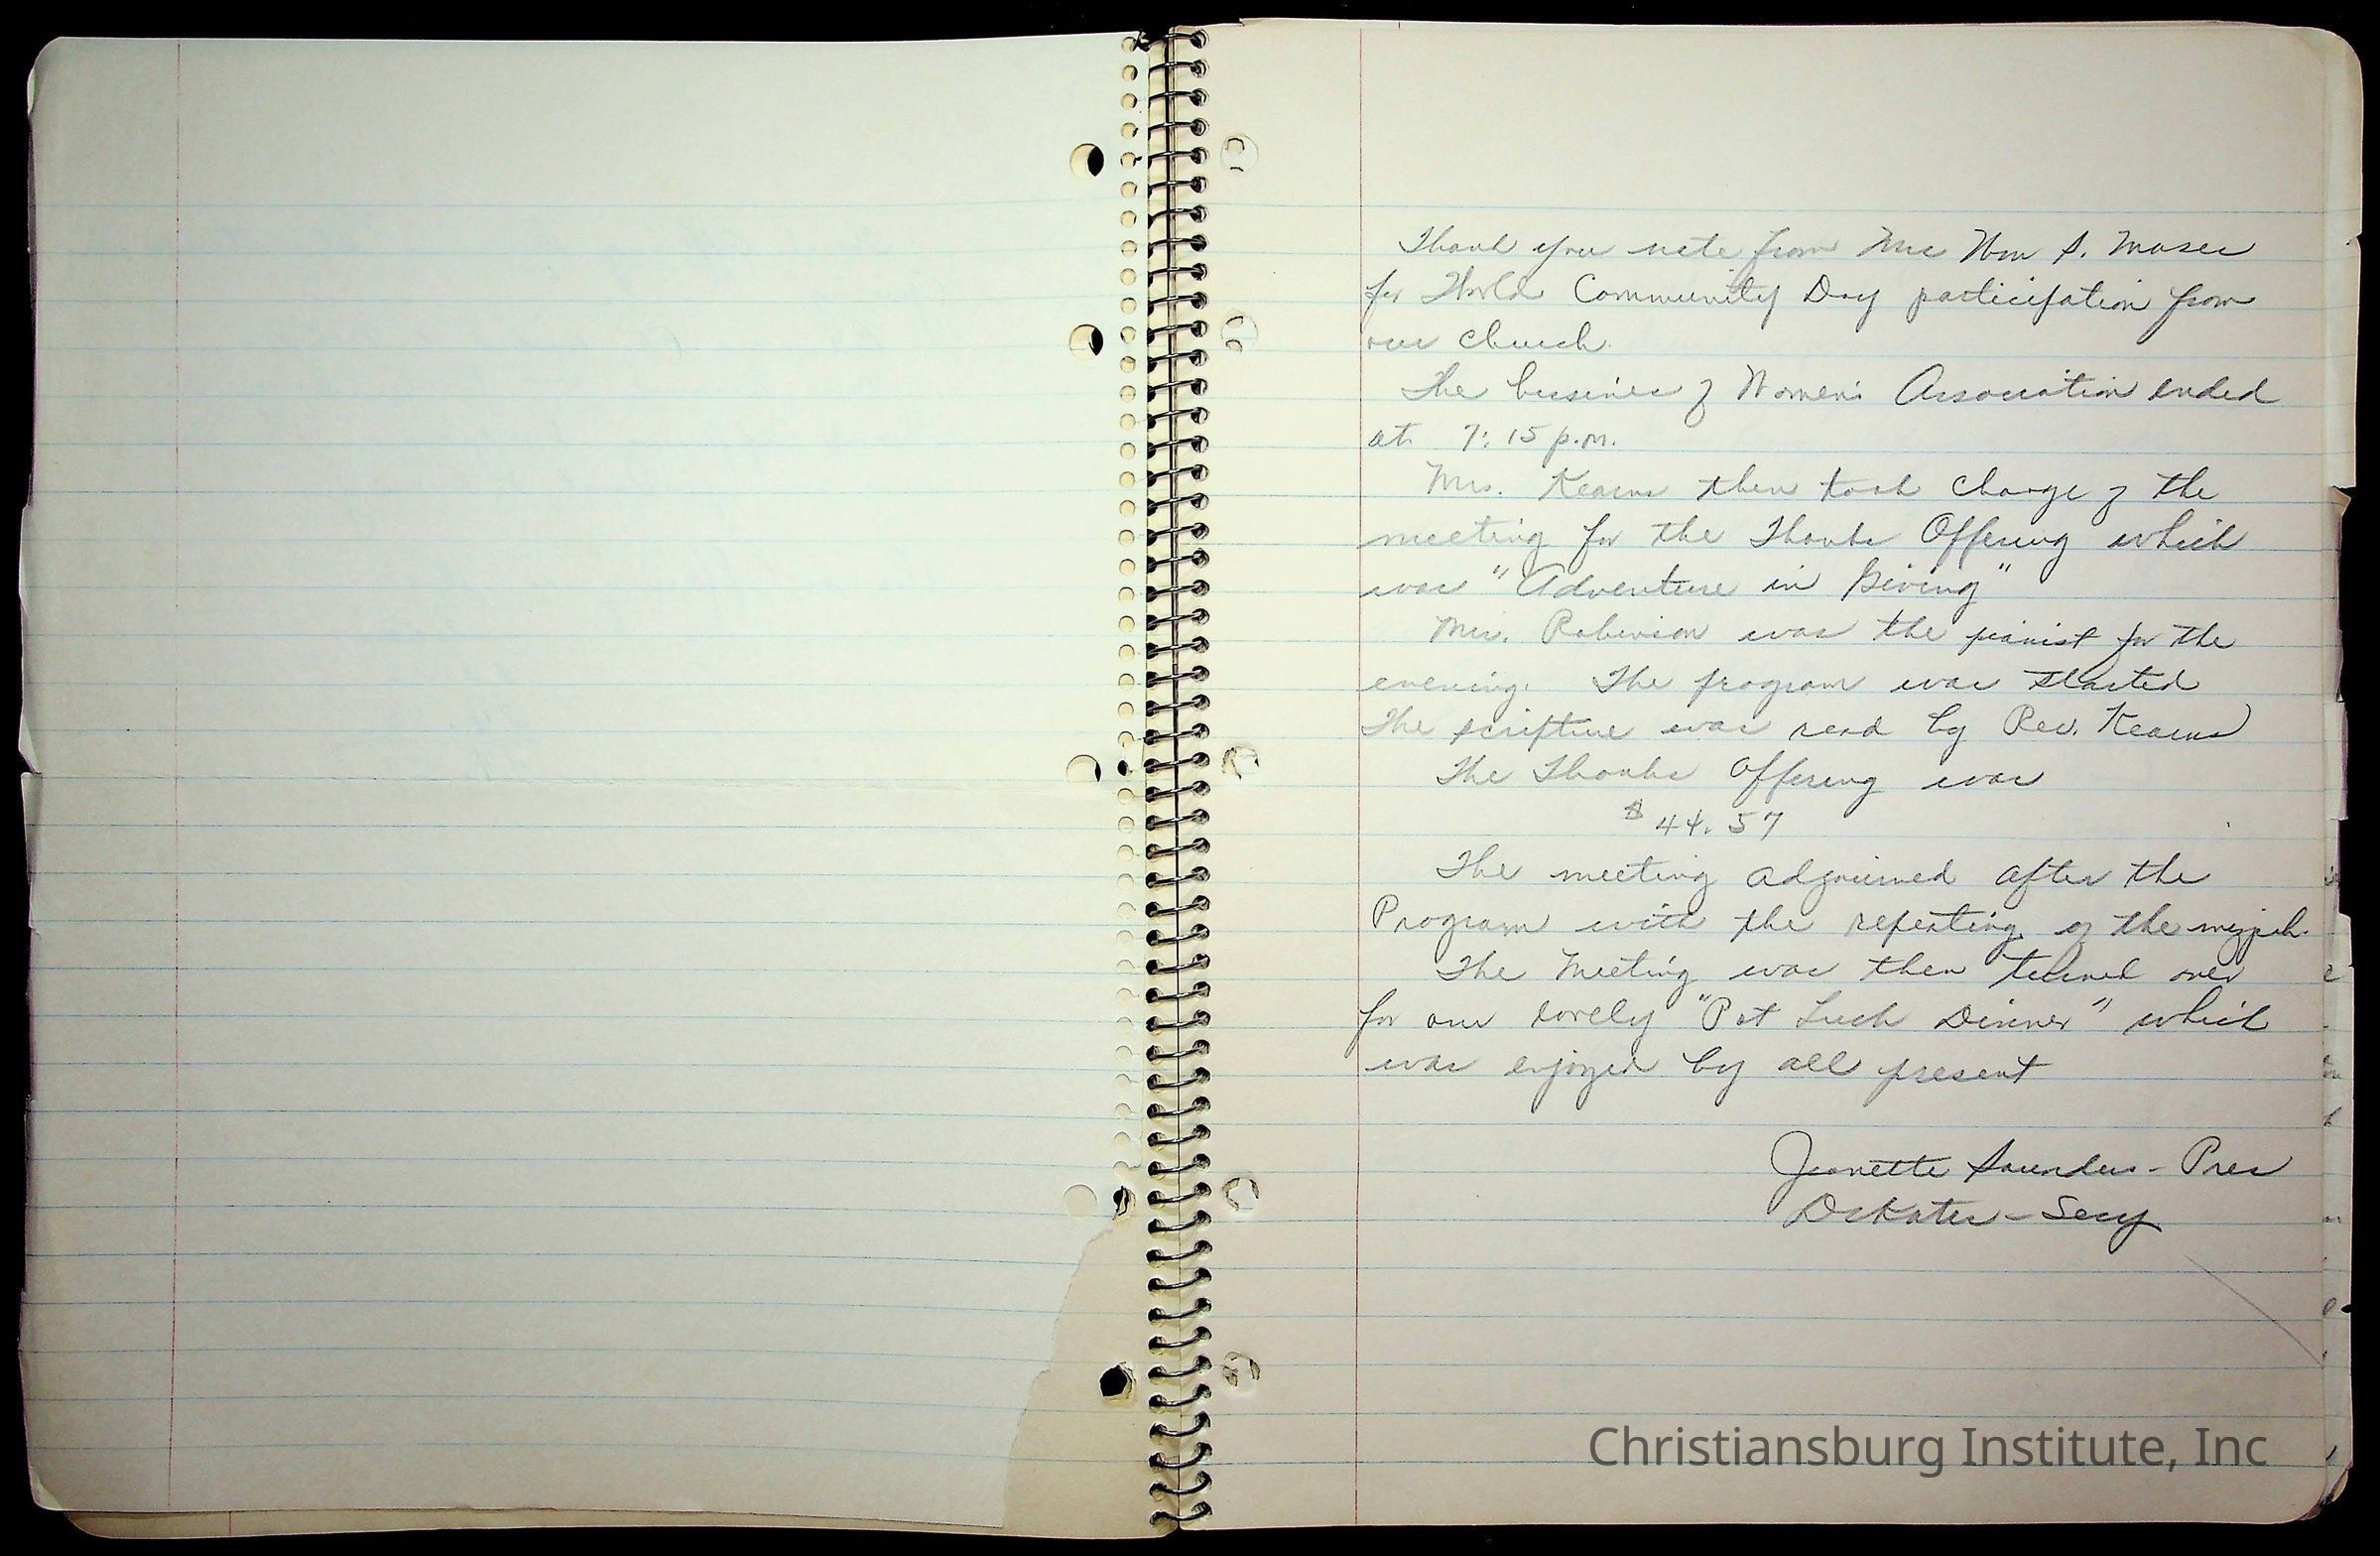 Thank you note from Mrs Wm S. Moses
for World Community Day participation from
our church.
The business of Women's Association ended
at 7:15 p.m.
Mrs. Kearns then took charge of the
meeting for the Thanks Offering which
was "Adventure in Giving"
Mrs. Robinson was the pianist for the
evening. The program was started
The scripture was read by Rev. Kearns
The Thanks Offering was
$44.57
The meeting adjourned after the
Program with the repeating of the mizpah.
The Meeting was then turned over
for our lovely "Pot Luck Dinner" which
was enjoyed by all present
Jeanette Saunders - Pres
- Secy
Christiansburg Institute, Inc